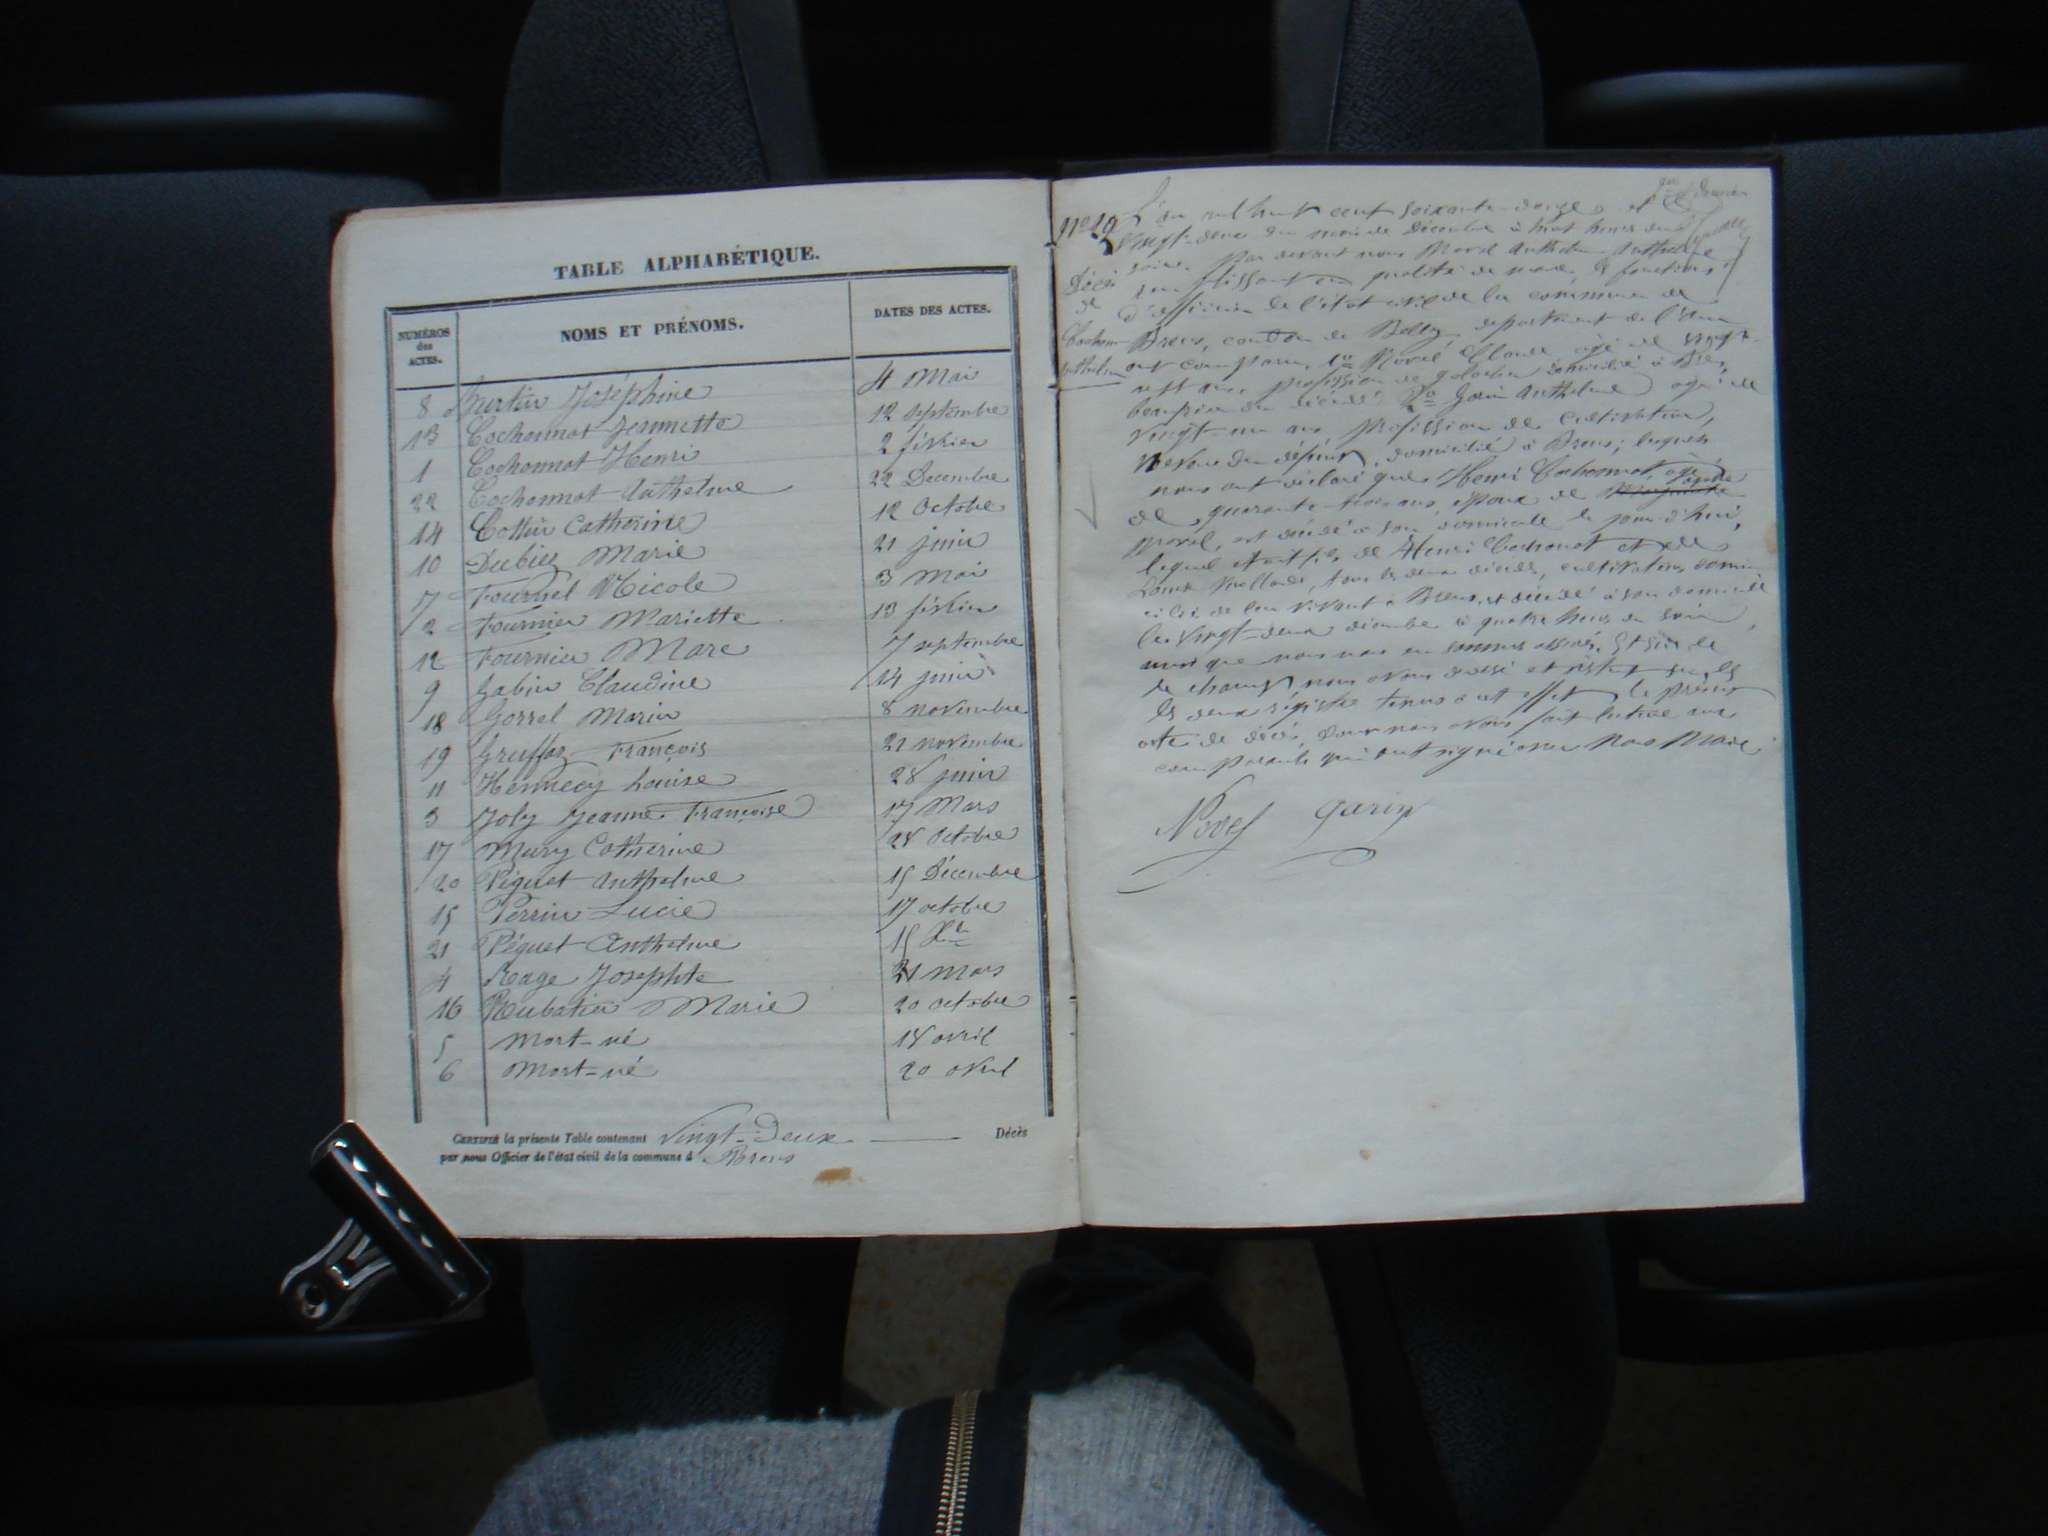 TABLE ALPHABÉTIQUE.
NUMÉROS des ACTES.
NOMS ET PRÉNOMS.
DATES DES ACTES.
8 Burtin Joséphine 4 Mai
13 Cochonnat Jeannette 12 septembre
1 Cochonnat Henri 2 février
22 Cochonnat Anthelme 22 Decembre
14 Cottin Catherine 12 Octobre
10 Dubiez Marie 21 juin
7 Fournel Nicole 3 Mai
2 Fournier Mariette 13 février
12 Fournier Marc 7 septembre
9 Gabin Claudine 14 juin
18 Gorrel Marin 8 novembre
19 Gruffaz François 21 novembre
11 Hennecy Louise 28 juin
3 Joly Jeanne Françoise 17 Mars
17 Mury Catherine 28 Octobre
20 Péguet Anthelme 15 Décembre
15 Perrin Lucie 17 octobre
21 Péguet Anthelme 15 Xbre
4 Rage Josephte 21 mars
16 Rubatier Marie 20 octobre
5 Mort-né 18 avril
6 Mort-né 20 avril
CERTIFIÉ la présente Table contenant Vingt-Deux Décès
par nous Officier de l'état civil de la commune d Brens
L'an mil huit cent soixante-douze et le
vingt-deux du mois de Décembre à huit heures du
soir. Par devant nous Morel Anthelme
Décès
de
Cochonnat
Anthelme
remplissant en qualité de maire, les fonctions
d'officier de l'état civil de la commune de
Brens, canton de Belley, département de l'Ain
ont comparu 1o Claude âgé de vingt-
sept ans, profession de galochier domicilié à Brens,
beau frère du décédé, 2o Garin Anthelme âgé de
vingt-un ans profession de cultivateur,
neveu du défunt, domicilié à Brens; lesquels
nous ont déclaré que Henri Cochonnat âgé
de quarante-trois ans, époux de
Morel, est décédé à son domicile le jour d'hui,
lequel était fils de Henri Cochonat et de
Louise tous les deux décédés, cultivateurs domi-
ciliés de leur vivant à Brens, et décédé à son domicile
le vingt-deux décembre à quatre heures du soir,
ainsi que nous nous en sommes assurés. Et sur le
le champ nous avons dressé et inscrit sur les
les deux régistres tenus à cet effet le présent
acte de décès, dont nous avons fait lecture aux
comparants qui ont signé avec Nous Maire
Garin